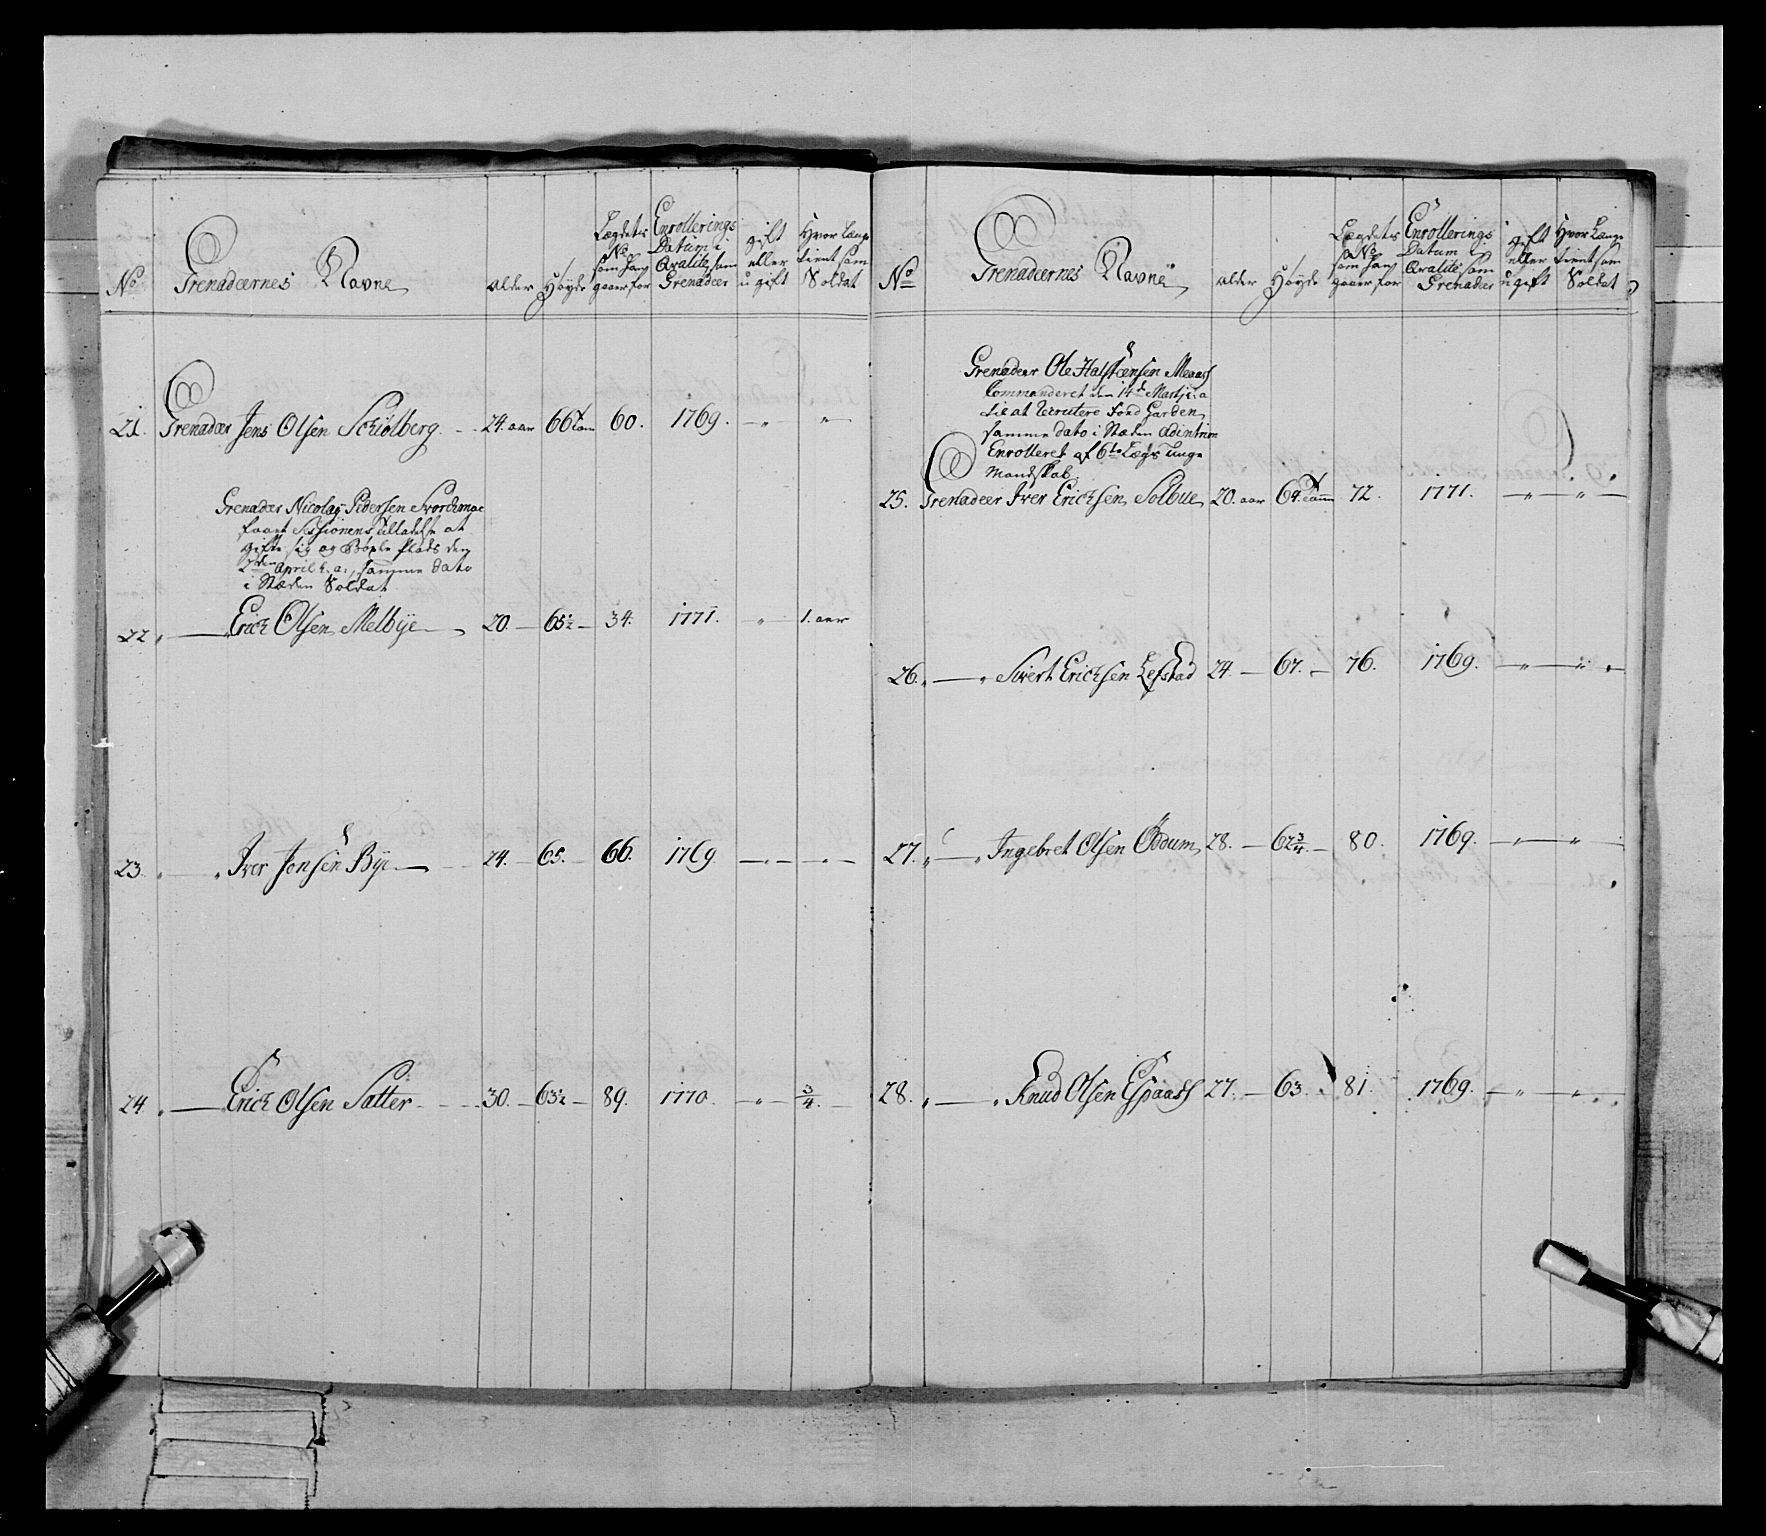 No
Grenadeernes Navne
alder
Høyde
Lægdets
No
som han
gaaer for
Enrollerings
Datum i
Qvalite som
Grenadeer
gift
eller
ugift
Hvor Længe
tient som
Soldat
21. Grenadeer Jens Olsen Schiølberg 24. aar 66 60. 1769. — „ „
Grenadeer Nicolay Pedersen Svorckmoe
faaet Sessionens tilladelse at
gifte sig og Böxle Plads den
2den April h. a:, samme dato
i Stæden Soldat
22 „ — Erich Olsen Melbye 20. — 65½ — 34. 1771. „ 1. aar
23. „ „ Iver Jonsen Bye — 24. — 65. — 66. 1769 — „ — „ —
24. „ — Erich Olsen Satter 30. — 63½ — 89. 1770. — „ — ¾.
No
Grenadeernes Navne
alder
Høyde
Lægdets
No
som han
gaaer for
Enrollerings
Datum i
Qvalite som
Grenadeer
gift
eller
ugift
Hvor Længe
tient som
Soldat
Grenadeer Ole Halstensen Meaas
Commanderet den 14de Martj h. a
til at Recrutere Fond Garden
samme dato i Stæden
Enrolleret af 6te Lægs unge
Mandskab
25. Grenadeer Iver Erichsen Solbue 20. aar 64. 72. 1771. — „ — „ —
26. „ — „ Sivert Erichsen Lefstad 24. — 67. — 76. 1769. — „ — „ —
27. „ — „ Ingebret Olsen Öddum 28. — 62¾ — 80. 1769. — „ — „ —
28. „ — „ Knud Olsen Espaass 27. — 63. 81. 1769. — „ — „